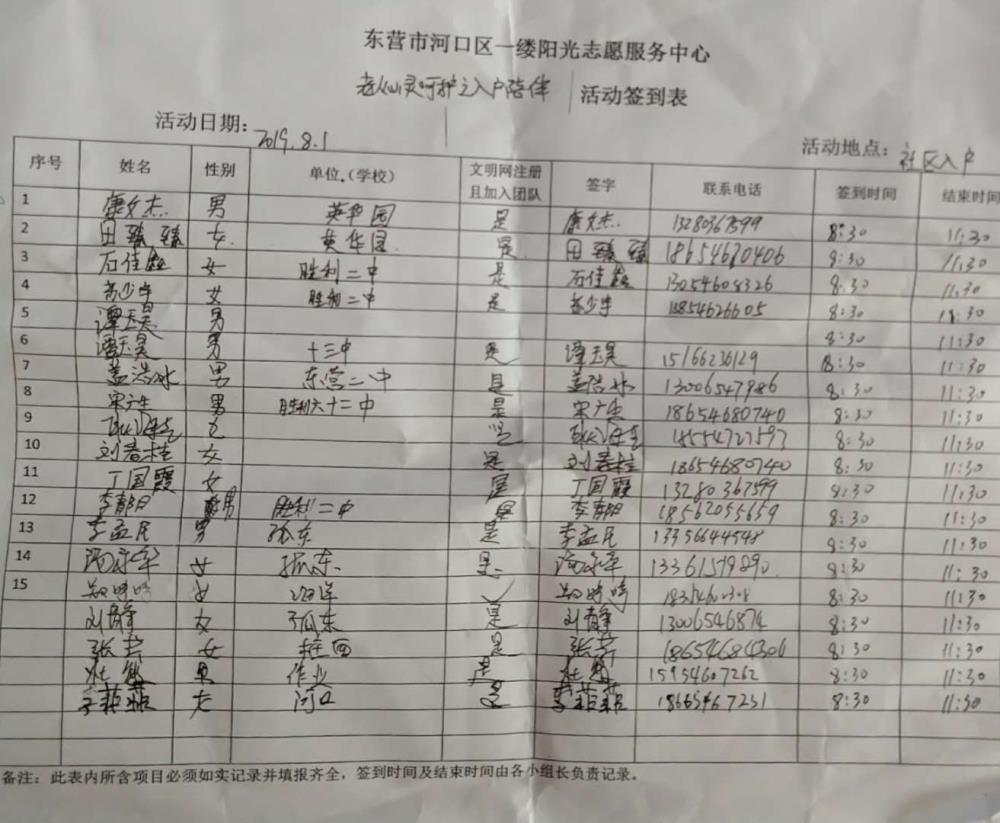 东营市河口区一缕阳光志愿服务中心
老小心灵呵护之入户陪伴 活动签到表
活动日期：2019.8.1 活动地点：社区入户
序号 姓名 性别 单位（学校） 文明网注册且加入团队 签字 联系电话 签到时间 结束时间
1 康文杰 男 英华园 是 康文杰 13280367599 8:30 11:30
2 田臻臻 女 英华园 是 田臻臻 18654670406 8:30 11:30
3 石佳鑫 女 胜利二中 是 石佳鑫 13054608326 8:30 11:30
4 女 胜利二中 是 13854626605 8:30 11:30
5 谭玉昊 男 8:30 11:30
6 谭玉昊 男 十三中 是 谭玉昊 15166236129 8:30 11:30
7 盖浩冰 男 东营二中 是 盖浩冰 13006547986 8:30 11:30
8 宋广生 男 胜利六十二中 是 宋广生 18654680740 8:30 11:30
9 是 18554727597 8:30 11:30
10 刘春桂 女 是 刘春桂 18654680740 8:30 11:30
11 丁国霞 女 是 丁国霞 13280367599 8:30 11:30
12 男 胜利二中 是 18562055659 8:30 11:30
13 李孟民 男 孤东 是 李孟民 13356644548 8:30 11:30
14 女 孤东 是 8:30 11:30
15 女 8:30 11:30
刘静 女 孤东 是 刘静 13006546874 8:30 11:30
张芳 女 桩西 是 张芳 18654684306 8:30 11:30
杜敏 男 作业 是 杜敏 15954607262 8:30 11:30
李菲菲 女 河口 是 李菲菲 18665467251 8:30 11:30
备注：此表内所含项目必须如实记录并填报齐全，签到时间及结束时间由各小组长负责记录。